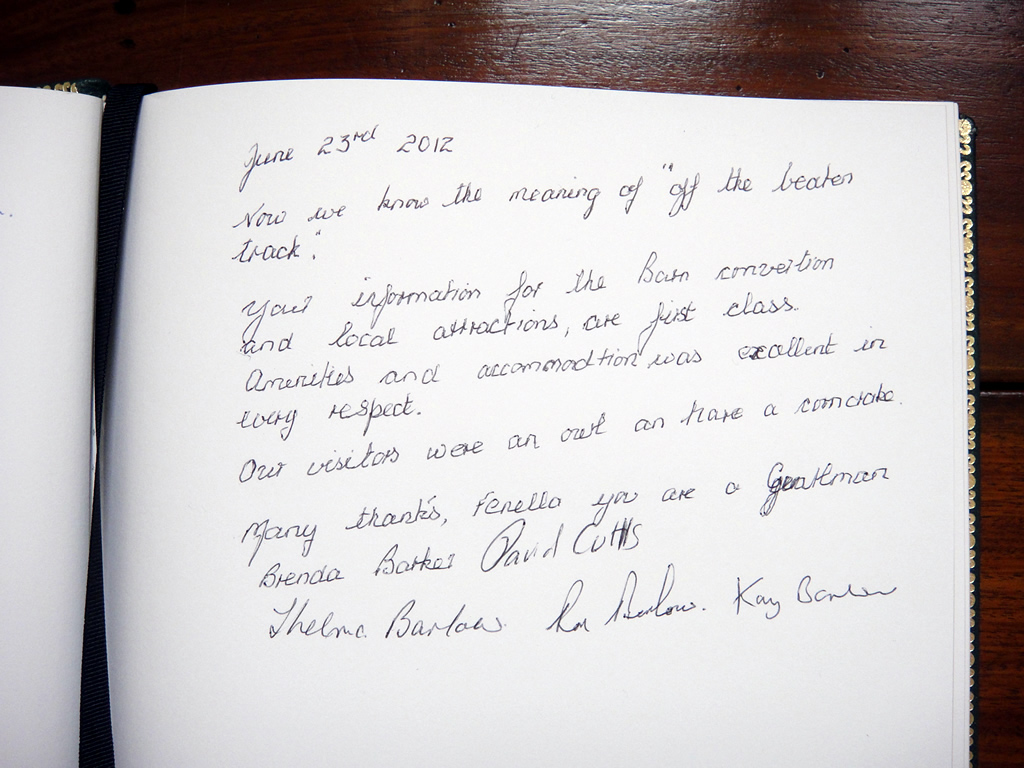 June 23rd 2012
Now we know the meaning of "off the beaten
track".
Your information for the Barn convertion
and local attractions, are first class.
Amenities and accommodtion was excellent in
every respect.
Our visitors were an owl an hare a corncrake.
Many thanks, Fenella you are a Gentleman
Brenda Barker David Cutts
Thelma Barlow. Ron Barlow. Kay Barlow